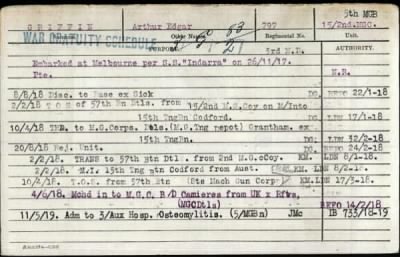 5th MGB
GRIFFIN Arthur Edgar 797 15/2nd.MGC.
WAR GRATUITY SCHEDULE
PURPOSE. Regimental No. AUTHORITY.
3rd M.D.
Embarked at Melbourne per S.S."Indarra" on 26/11/17.
Pte. N.R.
8/8/18 Disc. to Base ex Sick DG. REFO 22/1-18
2/2/18 T O S of 57th Bn Dtls. from 15/2nd M.G.Coy on M/Into
15th Tng Bn Codford. DG. LDN 17/1-18
10/4/18 TRE. to M.G.Corps. Dels.(M.G.Tng repot) Grantham. ex
15th TngBn. DG. LDN 32/2-18
20/8/18 Rej. Unit. DG. 24/2-18
2/2/18. TRANS to 57th Btn Dtl. from 2nd M.G.cCoy. KM. LDN 8/1-18.
" M.I. 15th Tng Btn Codford from Aust. KM. LDN 8/2-18.
10/4/18. T.O.S. from 57th Btn (Dts Mach Gun Corp) KM. LDN 17/3-18.
4/6/18. Mchd in to M.G.C. B/D Camieres from UK x Rfts,
(MGCDtls) REFO 14/2/18
11/5/19. Adm to 3/Aux Hosp. Osteomylitis. (5/MGBn) JMc IB 733/18-19